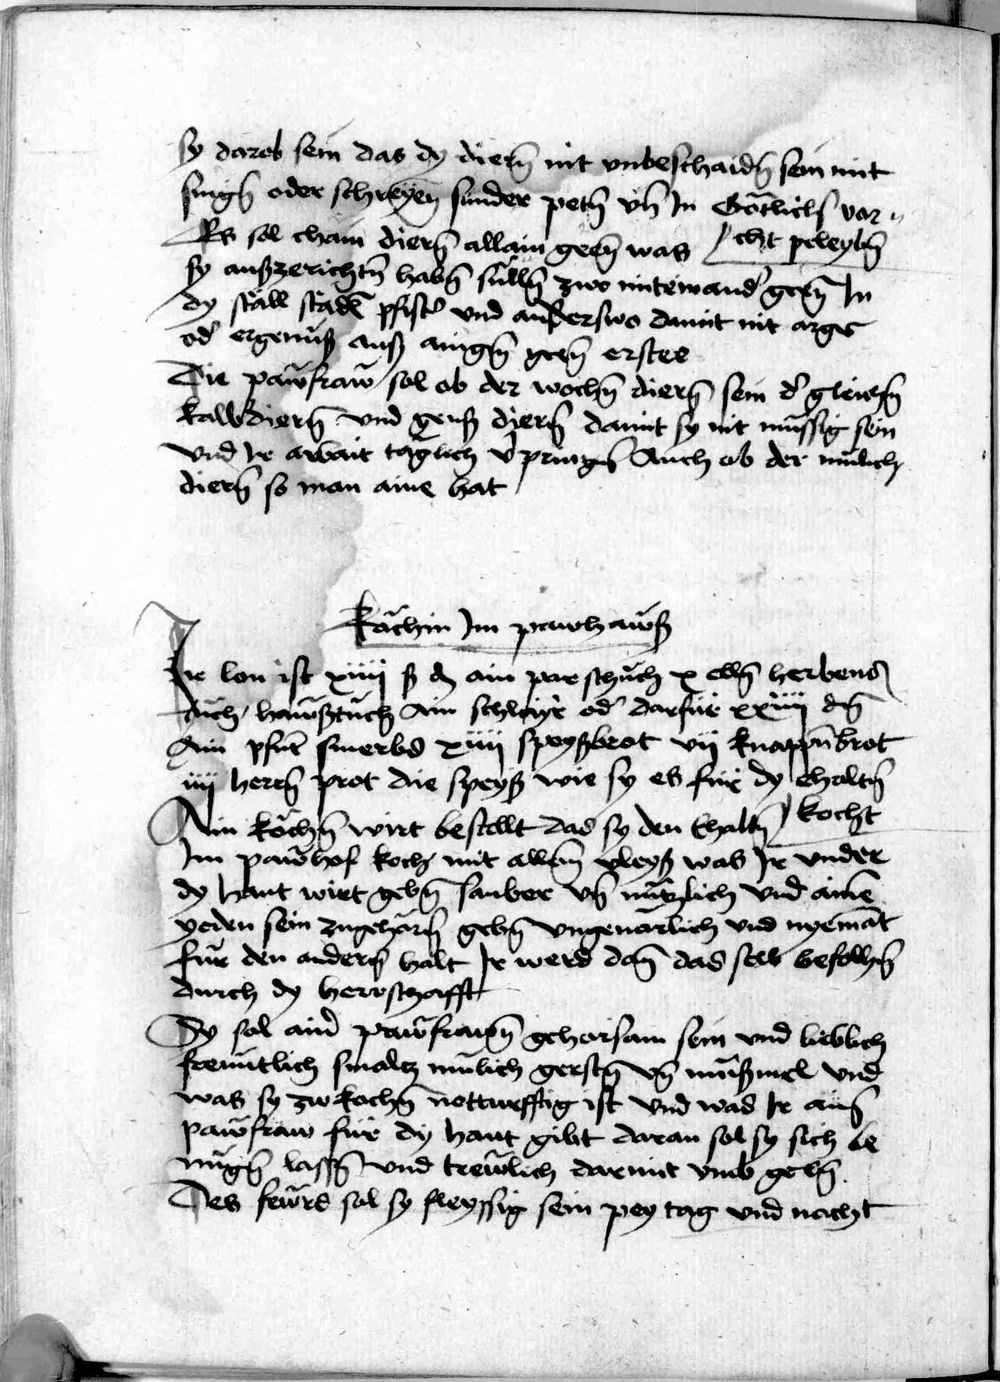 sy darob sein das dy diern̄ nit vnbeschaidn̄ sein mit
singn̄ oder schreyen sunder petn̄ vn̄ In Götlichs vor„
Es sol chain diern̄ allain geen̄ was / cht peleybn̄
sy außzerichtn̄ habn̄ süllen̄ zwo miteinand' geen̄ In
dy ställ städl pfist' vnd anderswo damit nit args
od' ergernuß auß ainigm̄ geen̄ erstee
Die pawfraw sol ob der wochn̄ diern̄ sein d' gleichn̄
kalbdiern̄ vnd genß diern̄ damit sy nit müssig sein
vnd Ir arbait täglich v'pringn̄ Auch ob der milich
diern̄ so man aine hat
Köchin Im pawhawß
Ir lon ist xiiii ß ₰ ain par schuch x elln̄ herbens
tuch / hawßtuch Ain schlayr od' darfür xxiiii dn̄
Ain pfunt smerbs xiiii speyßbrot vii knappn̄brot
iiii herrn̄ prot die speyß wie sy es für dy ehaltn̄
Ain köchn̄ wirt bestellt das sy den Ehaltn̄ / kocht
Im pawhof koch mit allem̄ vleyß was Ir vnder
dy hant wirt gebn̄ sauber vn̄ nützlich vnd aine͂
yeden sein zugehörn̄ gebn̄ vngeuärlich vnd nyemāt
für den andern̄ halt Ir werd dan̄ das selb befolhn̄
durch dy herrschafft
Sy sol ain' pawfrawn̄ gehorsam sein vnd lieblich
freuntlich smaltz milich gerstn̄ vn̄ müßmel vnd
was sy zw kochn̄ notturfftig ist vnd was Ir ain̄
pawfraw für dy hant gibt daran sol sy sich be
nügn̄ lassn̄ vnd trewlich darmit vmb geen̄
Des fewrs sol sy fleyssig sein pey tag vnd nacht